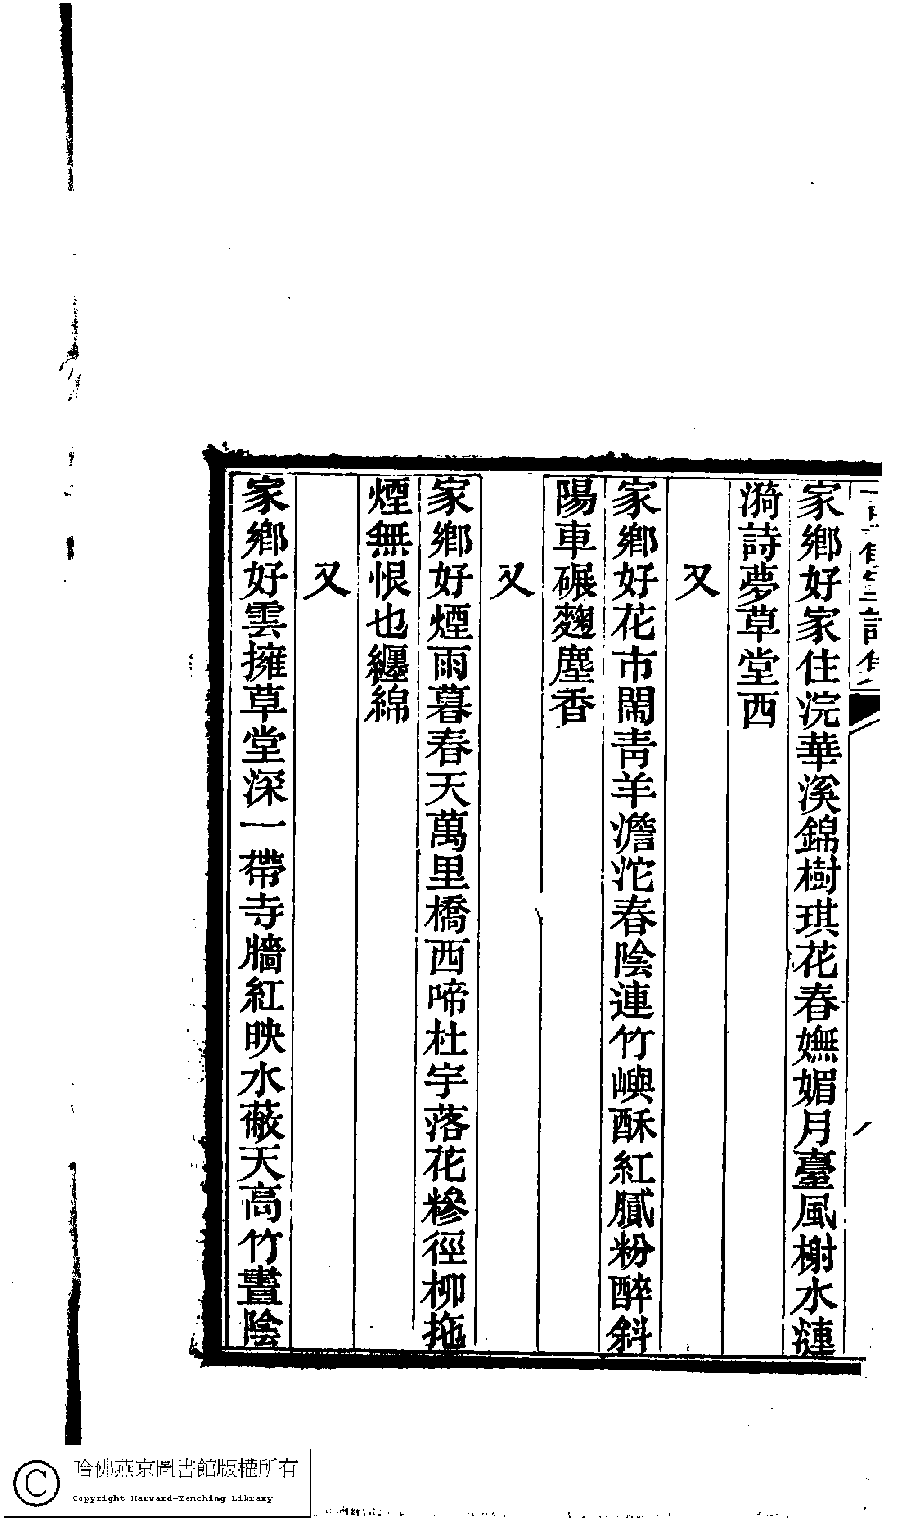 家鄉好家住浣華溪錦樹琪花春嫵媚月臺風榭水漣
漪詩夢草堂西
又
家鄉好花市鬧青羊澹沱春陰連竹嶼酥紅膩粉醉斜
陽車碾麴塵香
又
家鄉好煙雨暮春天萬里橋西啼杜宇落花糝徑柳拖
煙無恨也纏綿
又
家鄉好雲擁草堂深一帶寺牆紅映水蔽天高竹晝陰
哈佛燕京圖書館版權所有
Copyright Harvard-Yenching Library